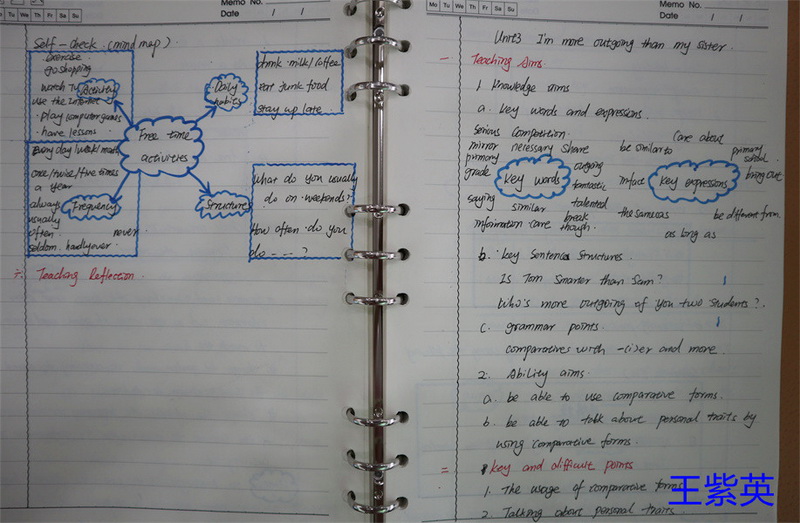 Memo No.
Mo Tu We Th Fr Sa Su
Date / /
Self-check (mind map).
exercise
go shopping
watch TV
use the Internet
play computer games
have lessons
Activity
Daily habits
drink milk/coffee
eat junk food
stay up late
Free time activities
every day/week/month
once/twice/five times
a year
always
usually
often never
seldom. hardly ever
Frequency
Structure
What do you usually
do on weekends?
How often do you
do - - - ?
Teaching Reflection.
Memo No.
Mo Tu We Th Fr Sa Su
Date / /
Unit3 I'm more outgoing than my sister.
一 Teaching Aims.
1 Knowledge aims
a. key words and expressions.
serious Competition.
mirror necessary share
primary
grade
key words
outgoing
fantastic
saying similar talented
information care break though.
be similar to
care about
primary school
bring out
impact
key expressions
the same as
be different from
as long as
b. key sentence structures.
Is Tom smarter than Sam?
Who's more outgoing of you two students?
c. grammar points.
comparatives with -(i)er and more
2. Ability aims.
a. be able to use comparative forms.
b. be able to talk about personal traits by
using comparative forms.
二 key and difficult points
1. The usage of comparative forms
2. Talking about personal traits
王紫英